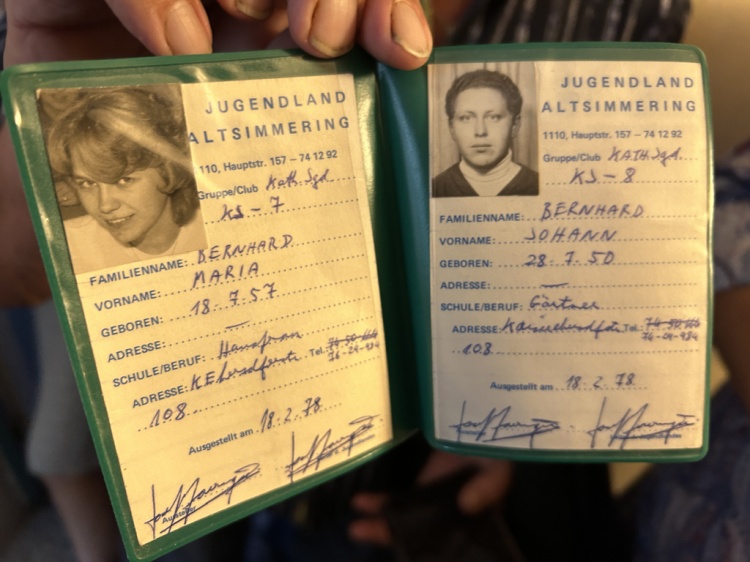 JUGENDLAND
ALTSIMMERING
1110, Hauptstr. 157 – 74 12 92
Gruppe/Club Kath. Jgd.
KS – 7
FAMILIENNAME: BERNHARD
VORNAME: MARIA
GEBOREN: 18.7.57
ADRESSE: —
SCHULE/BERUF: Hausfrau
ADRESSE: Tel.
76-04-984
108
Ausgestellt am 18.2.78
JUGENDLAND
ALTSIMMERING
1110, Hauptstr. 157 – 74 12 92
Gruppe/Club KATH. Jgd.
KS – 8
FAMILIENNAME: BERNHARD
VORNAME: JOHANN
GEBOREN: 28.7.50
ADRESSE: —
SCHULE/BERUF: Gärtner
ADRESSE: Tel.
76-04-984
108
Ausgestellt am 18.2.78